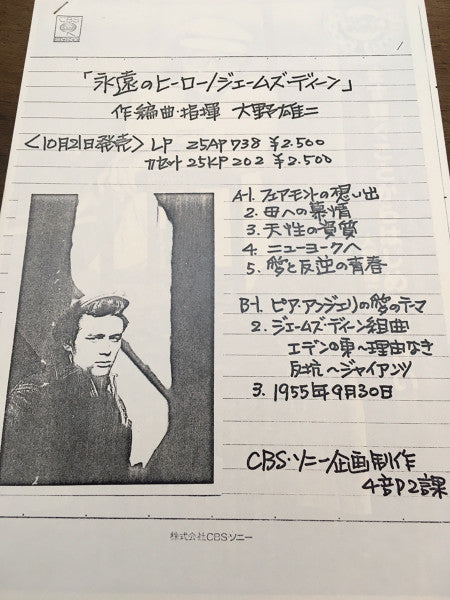 「永遠のヒーロー/ジェームズ・ディーン」
作編曲・指揮 大野雄二
<10月21日発売> LP 25AP738 ¥2.500
カセット25KP202 ¥2.500
A-1. フェアモントの想い出
2. 母への慕情
3. 天性の資質
4. ニューヨークへ
5. 夢と反逆の青春
B-1. ピア・アンジェリの愛のテーマ
2. ジェームズ・ディーン組曲
エデンの東〜理由なき
反抗〜ジャイアンツ
3. 1955年9月30日
CBS・ソニー企画制作
4音P2課
株式会社CBSソニー